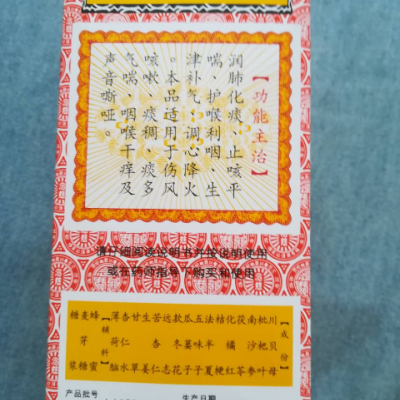 【功能主治】
润肺化痰、止咳平
喘、护喉利咽、生
津补气、调心降火
。本品适用于伤风
咳嗽、痰稠、痰多
气喘、咽喉干痒及
声音嘶哑。
请仔细阅读说明书并按说明使用
或在药师指导下购买和使用
【成份】
川贝母
枇杷叶
南沙参
茯苓
化橘红
桔梗
法半夏
五味子
瓜蒌子
款冬花
远志
苦杏仁
生姜
甘草
杏仁水
薄荷脑
【辅料】
蜂蜜
麦芽糖
糖浆
产品批号
生产日期